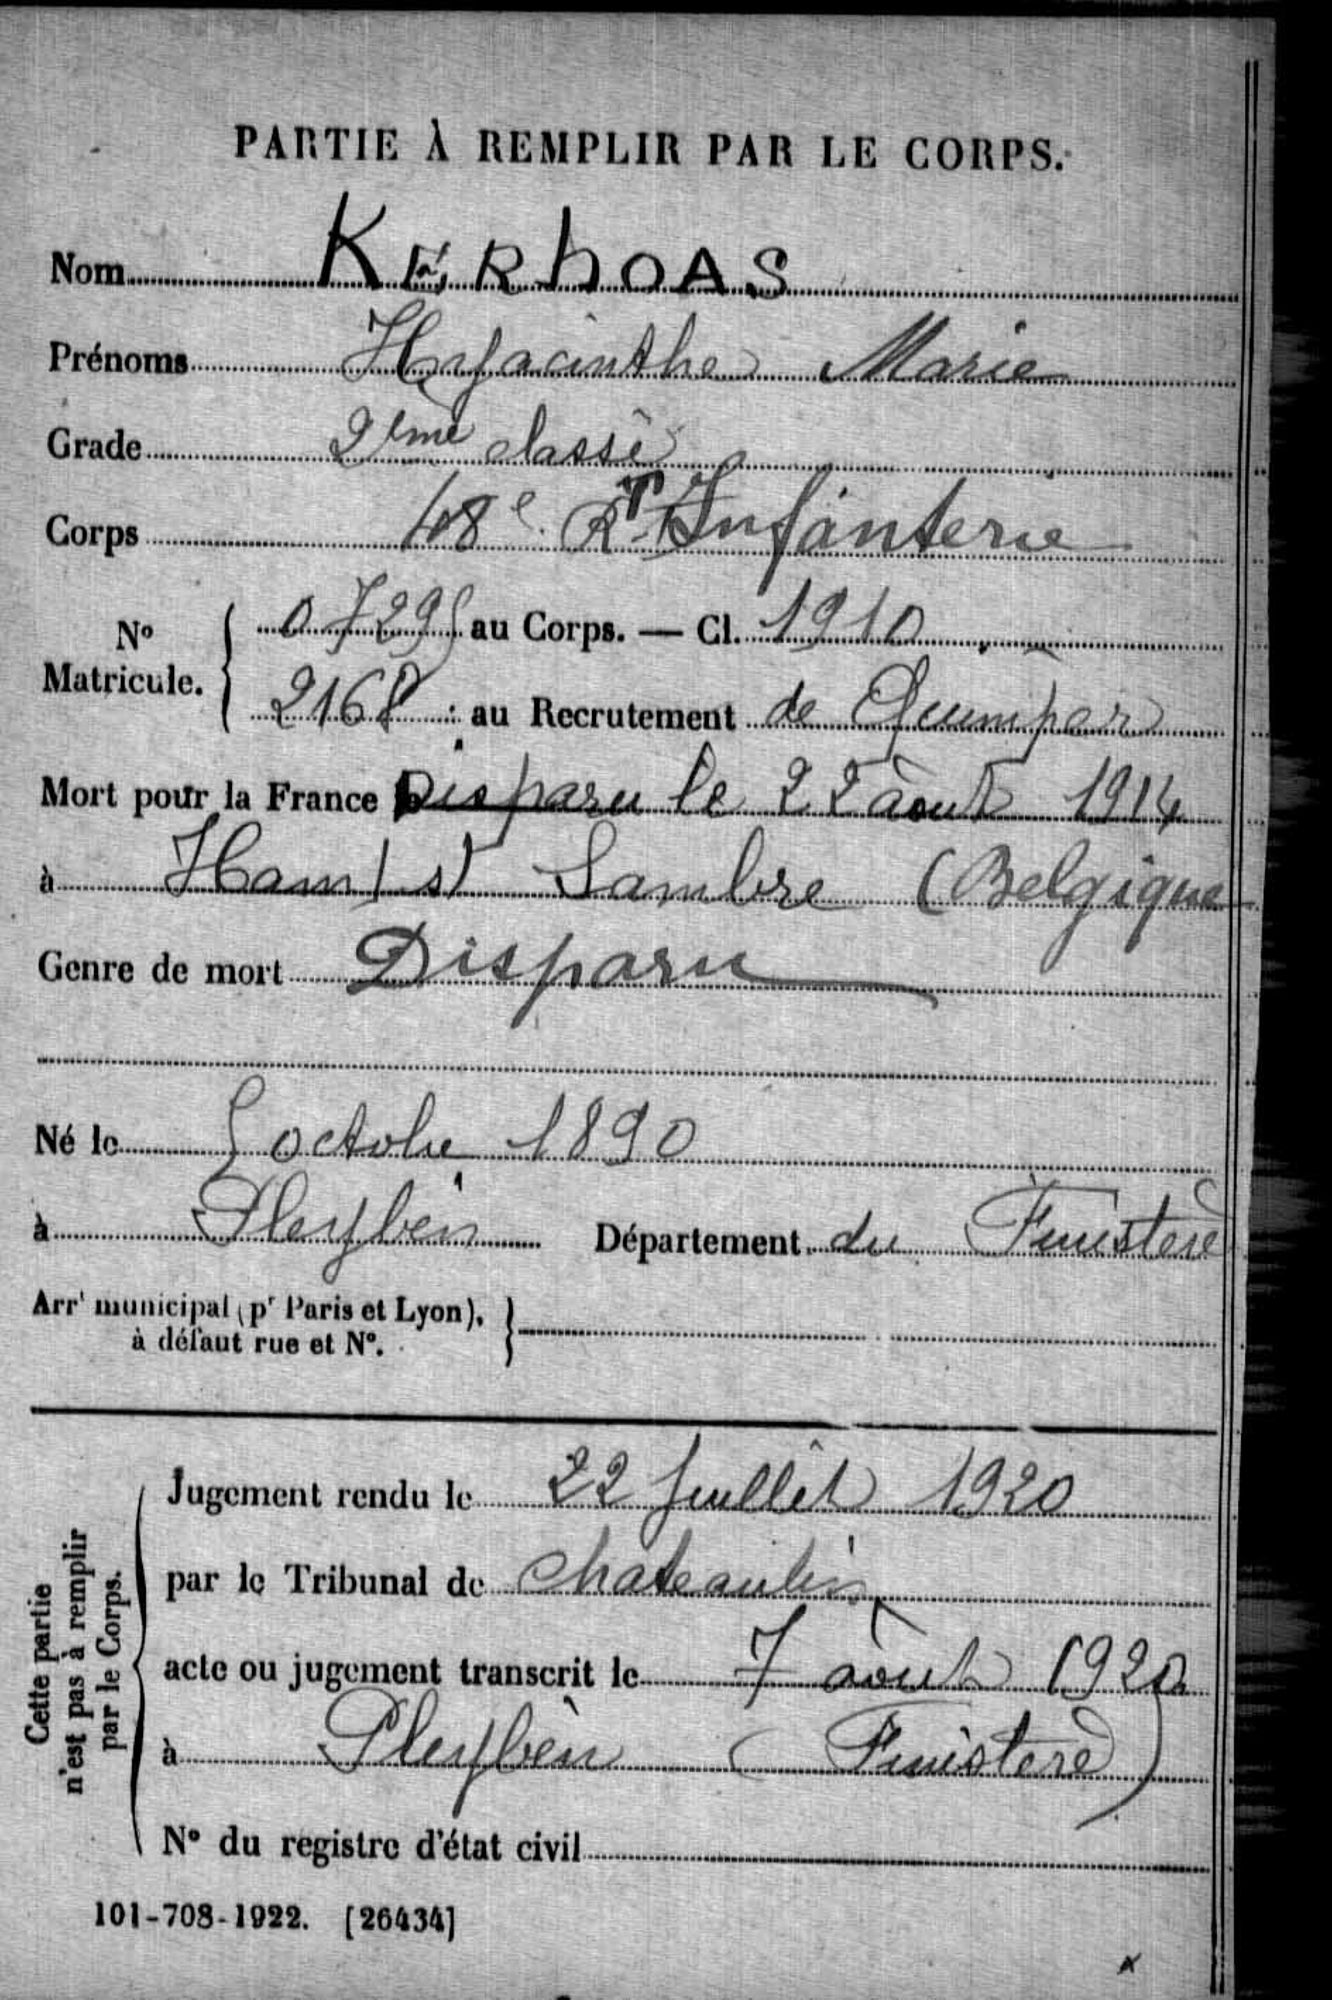 PARTIE À REMPLIR PAR LE CORPS.
Nom KERhOAS
Prénoms Hyacinthe Marie
Grade 2ème classe
Corps 48e RT Infanterie
N° Matricule. { 07295 au Corps. — Cl. 1910
2168 au Recrutement de Quimper
Mort pour la France le Disparu le 22 août 1914
à Ham s/ Sambre (Belgique
Genre de mort Disparu
Né le 5 octobre 1890
à Pleyben Département du Finistère
Arrt municipal (pr Paris et Lyon),
à défaut rue et N°.
Cette partie n'est pas à remplir par le Corps.
Jugement rendu le 22 Juillet 1920
par le Tribunal de Chateaulin
acte ou jugement transcrit le 7 août 1920
à Pleyben (Finistère)
N° du registre d'état civil
101-708-1922. [26434]